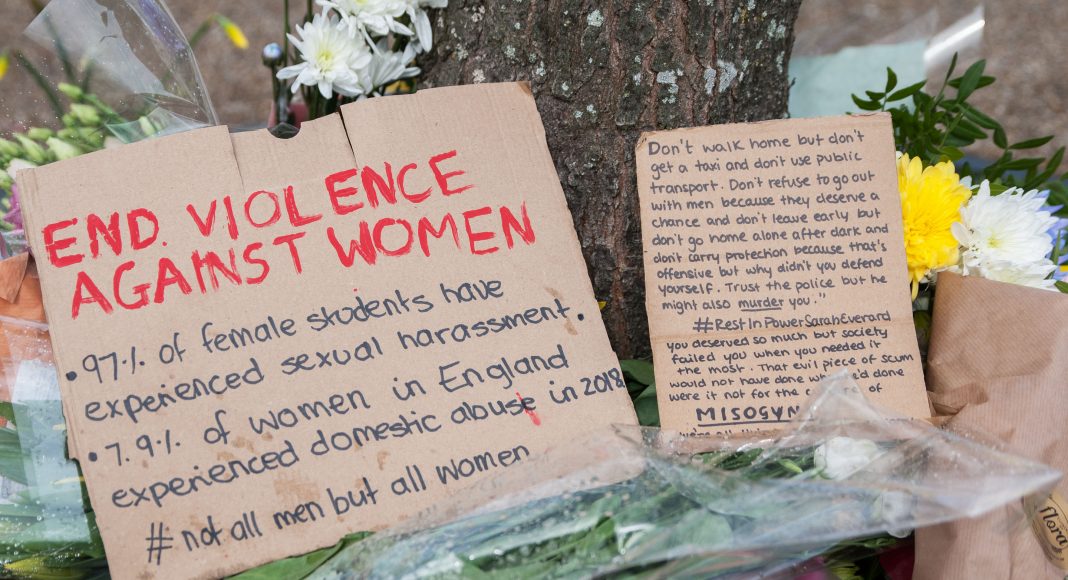 END. VIOLENCE
AGAINST WOMEN
• 97.1. of female students have
experienced sexual harassment.
• 7.9.1. of women in England
experienced domestic abuse in 2018
# not all men but all women
Don't walk home but don't
get a taxi and don't use public
transport. Don't refuse to go out
with men because they deserve a
chance and don't leave early but
don't go home alone after dark and
don't carry protection because that's
offensive but why didn't you defend
yourself. Trust the police but he
might also murder you."
#RestInPowerSarahEverard
you deserved so much but society
failed you when you needed it
the most. That evil piece of scum
would not have done done
were it not for the of
MISOGYN
flora